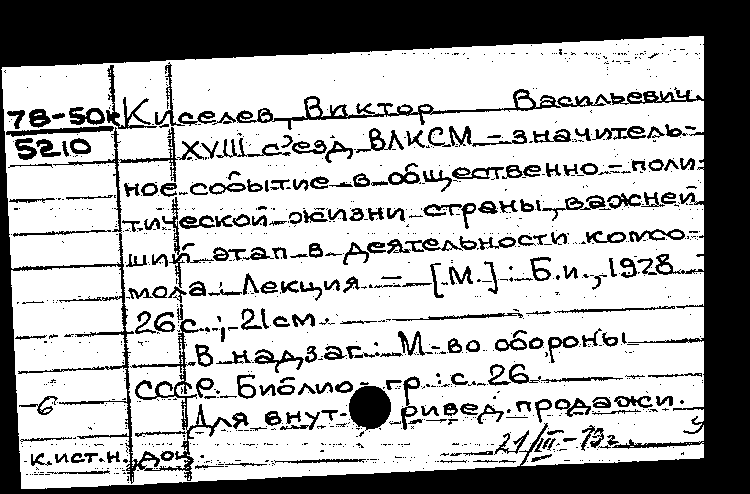 78-50к Киселев, Виктор Васильевич.
5210 XVIII с'езд ВЛКСМ - значитель-
ное событие в общественно-поли-
тической жизни страны, важней
ший этап в деятельности комсо-
мола: Лекция. - [М.]: Б.и., 1928 -
26 с.; 21 см.
В надзаг.: М-во обороны
СССР. Библиогр.: с. 26.
6 Для внут- ривед. продажи.
21/III-79г. у
к.ист.н., доц.